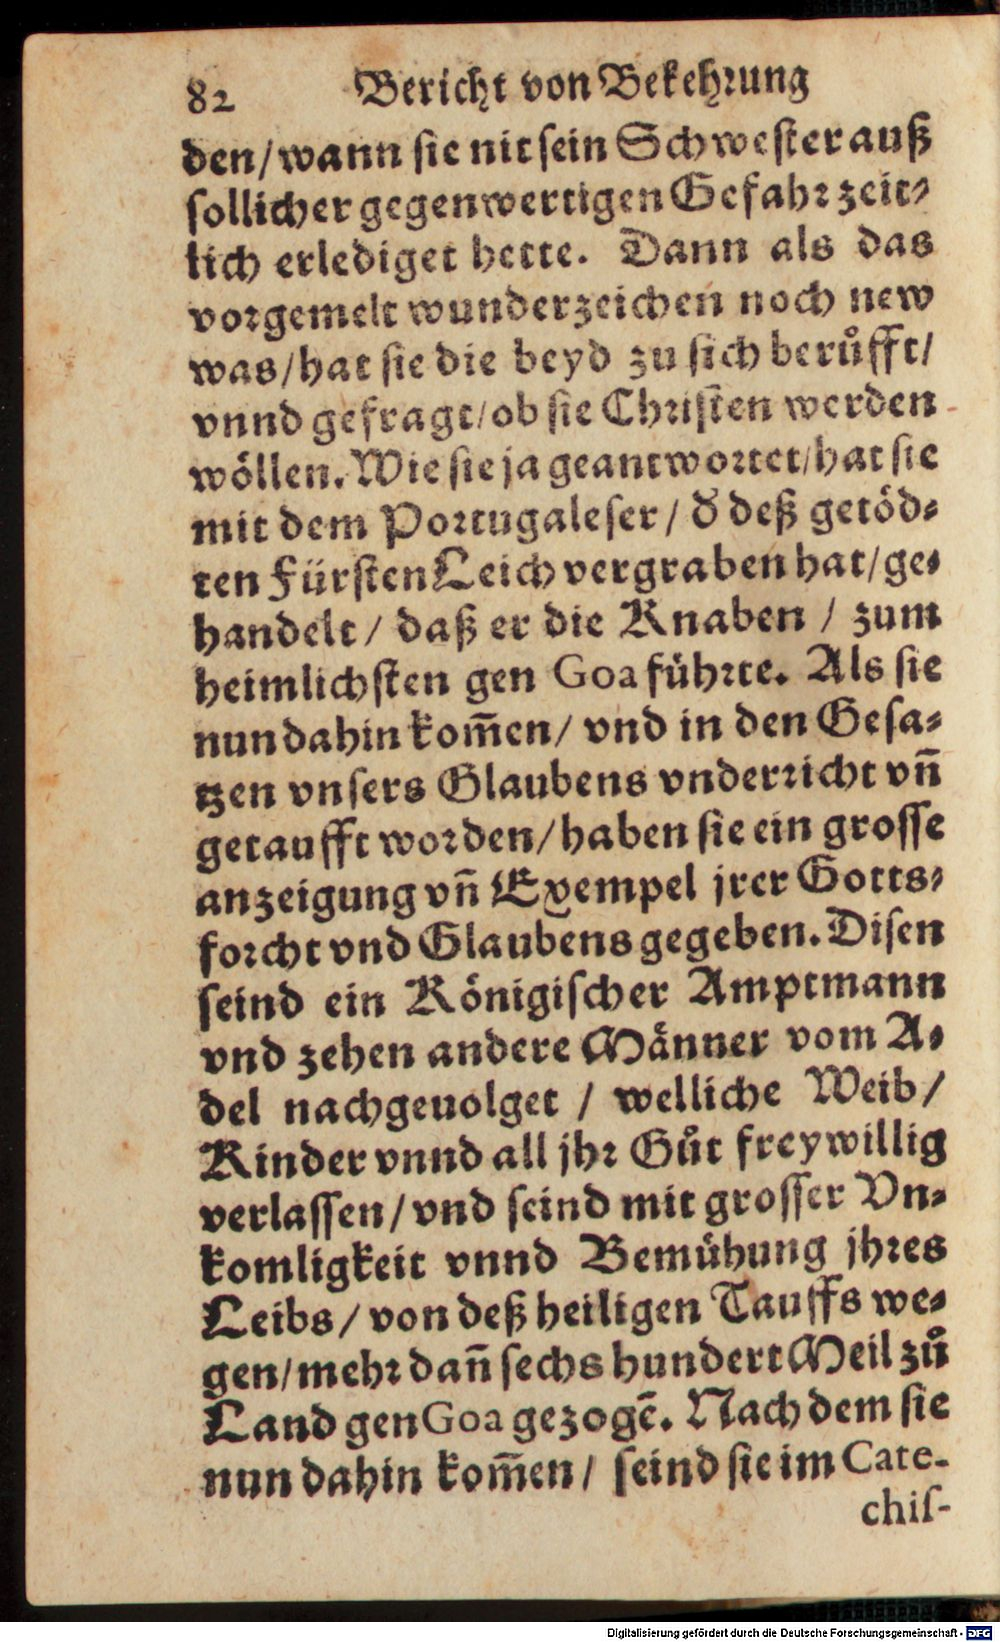 82 Bericht von Bekehrung
den/wann sie nit sein Schwester auß
sollicher gegenwertigen Gefahr zeit⸗
lich erlediget hette. Dann als das
vorgemelt wunderzeichen noch new
was/hat sie die beyd zu sich berůfft/
vnnd gefragt/ob sie Christen werden
wöllen. Wie sie ja geantwortet/hat sie
mit dem Portugaleser/ d̄ deß getöd⸗
ten Fürsten Leich vergraben hat/ge⸗
handelt/ daß er die Knaben / zum
heimlichsten gen Goa führte. Als sie
nun dahin kom̄en/ vnd in den Gesa⸗
tzen vnsers Glaubens vnderricht vn̄
getaufft worden/haben sie ein grosse
anzeigung vn̄ Exempel jrer Gotts⸗
forcht vnd Glaubens gegeben. Disen
seind ein Königischer Amptmann
vnd zehen andere Männer vom A⸗
del nachgeuolget / welliche Weib/
Kinder vnnd all jhr Gůt freywillig
verlassen/vnd seind mit grosser Vn⸗
komligkeit vnnd Bemühung jhres
Leibs/von deß heiligen Tauffs we⸗
gen/mehr dan̄ sechs hundert Meil zů
Land gen Goa gezogē. Nach dem sie
nun dahin kom̄en/ seind sie im Cate-
chiſ-
Digitalisierung gefördert durch die Deutsche Forschungsgemeinschaft - DFG